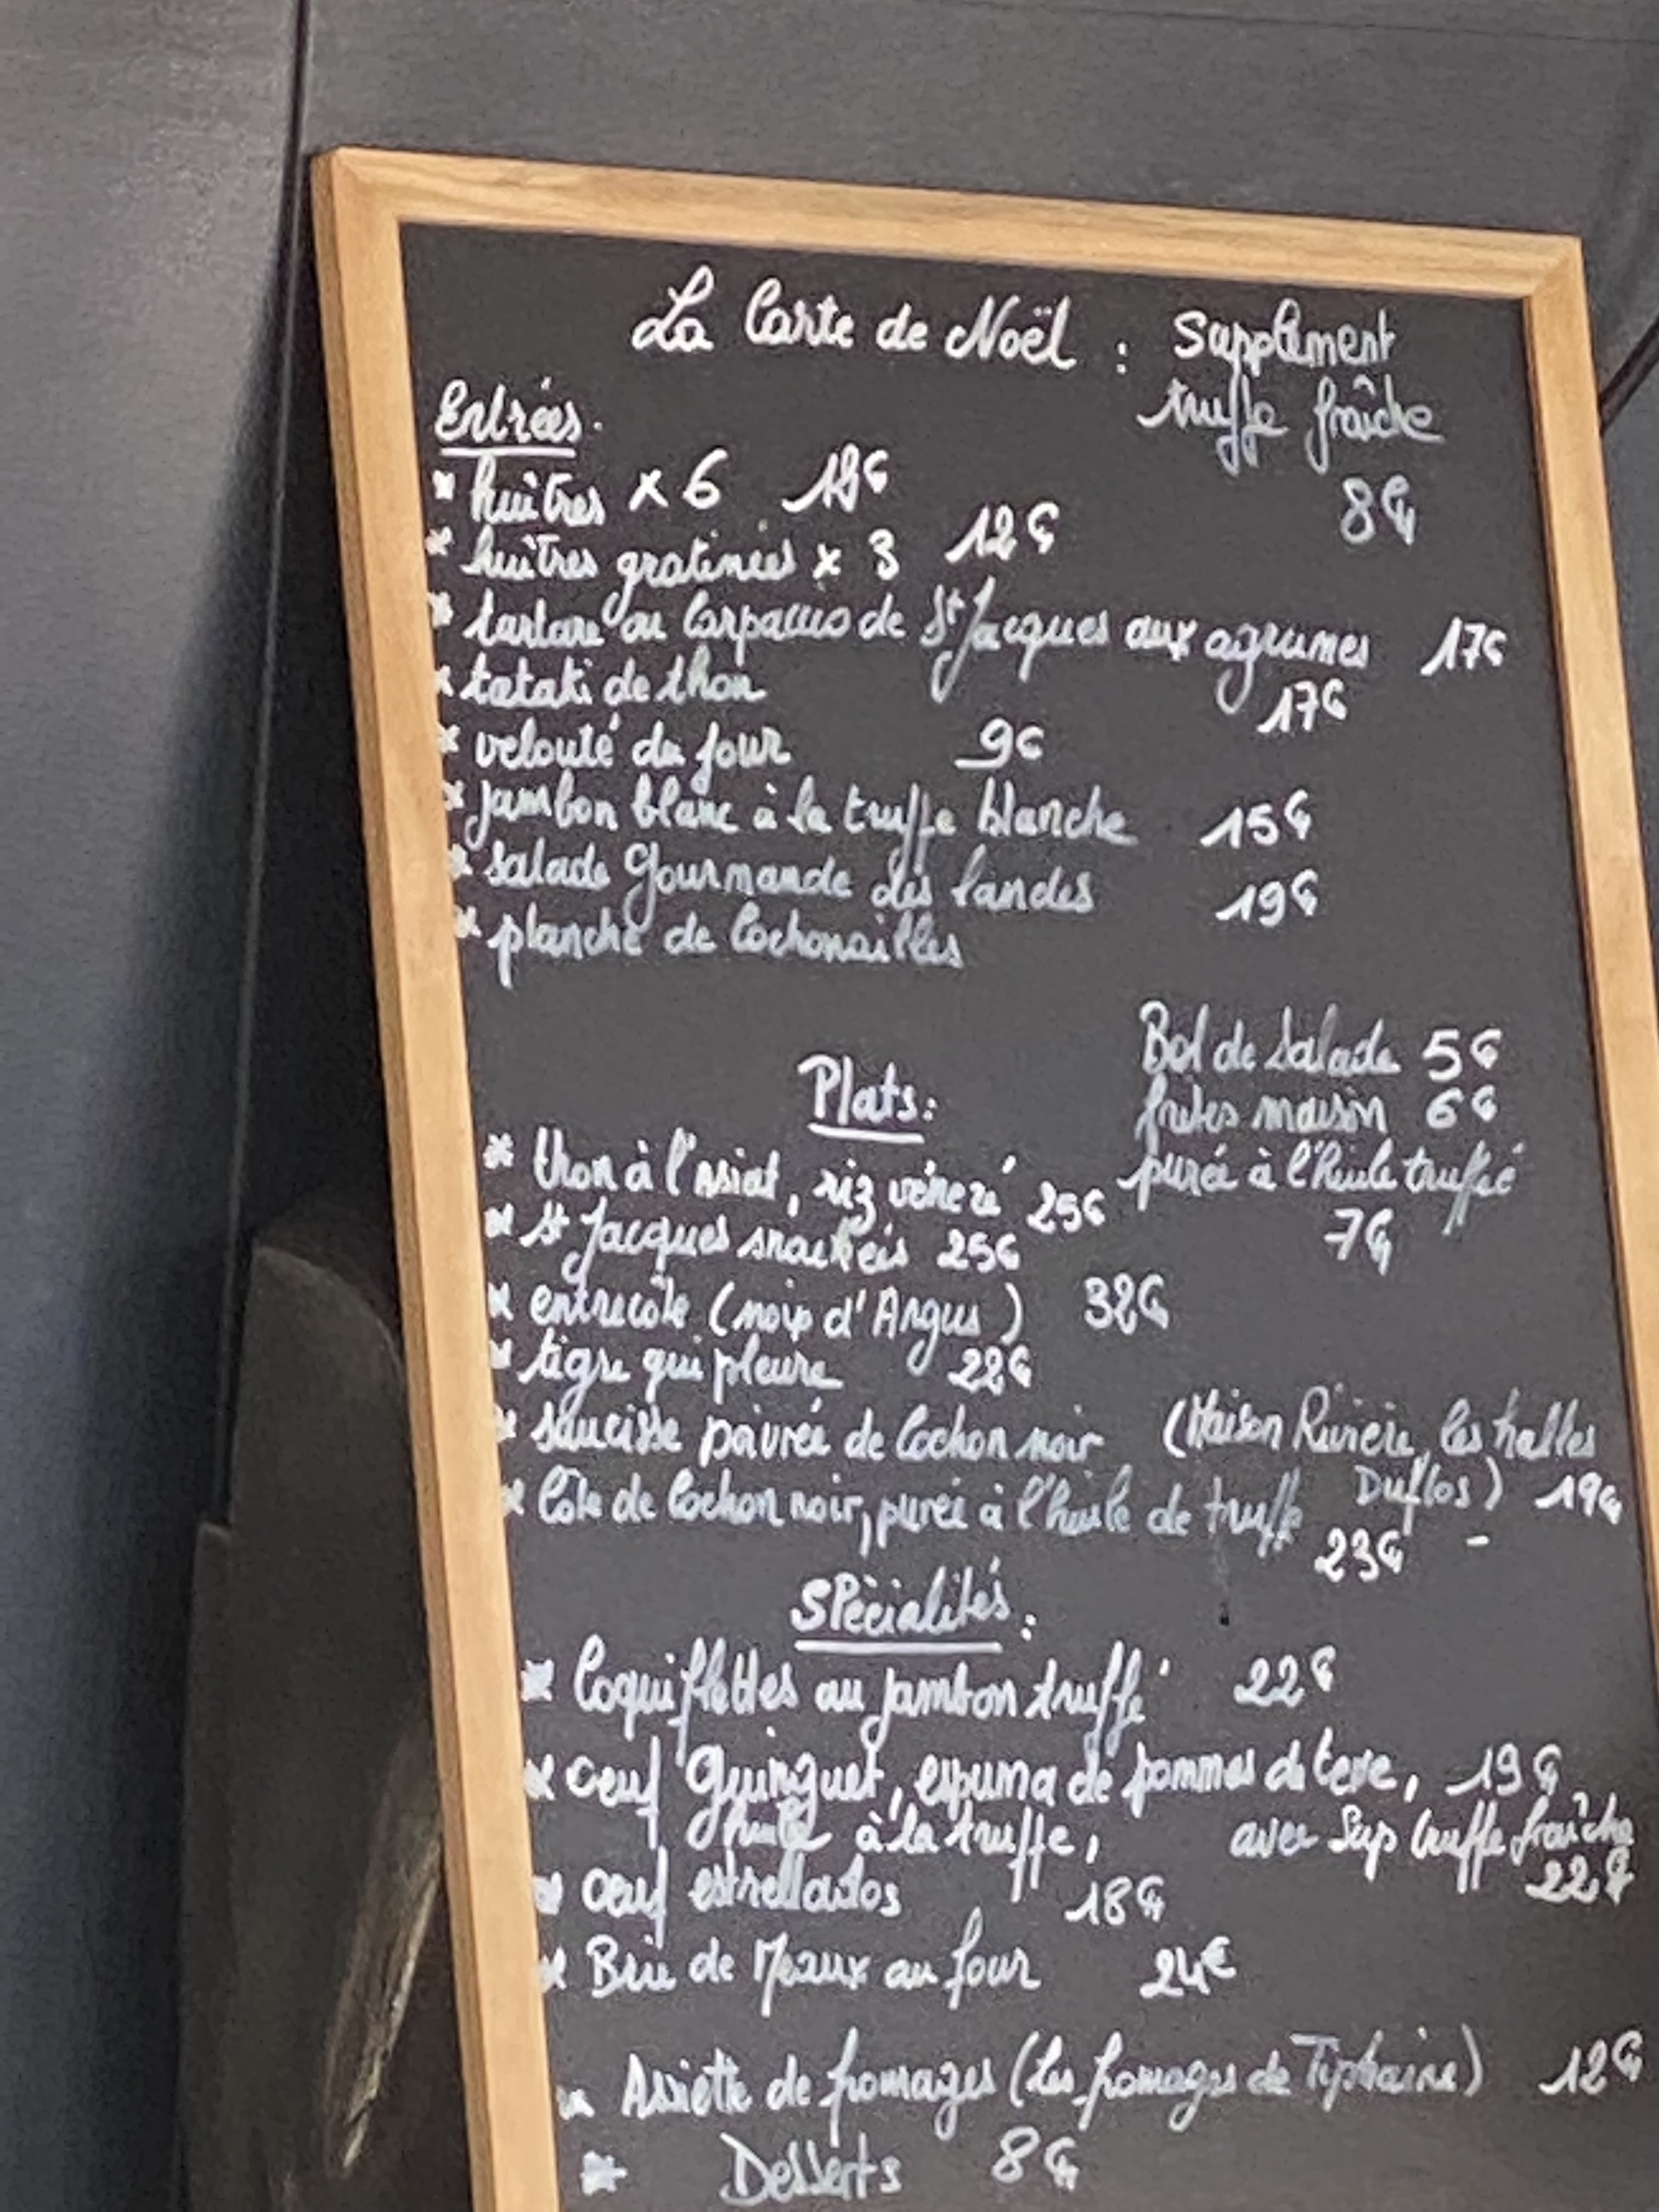 La Carte de Noël : Supplément
truffe fraîche
8€
Entrées.
* huîtres x 6
* huîtres gratinées x 3 12€
* tartare ou Carpaccio de St Jacques aux agrumes 17€
* tataki de thon 17€
* velouté du jour 9€
* jambon blanc à la truffe blanche 15€
* salade Gourmande des Landes 19€
* planche de Cochonailles
Bol de Salade 5€
frites maison 6€
purée à l'huile truffé
7€
Plats:
* thon à l'Asiat, riz vénéré 25€
* St Jacques snackées 25€
* entrecôte (noix d'Angus) 32€
* tigre qui pleure 22€
* saucisse poivrée de Cochon noir (Maison Rivière, les halles
Duflos) 19€
* Côte de Cochon noir, purée à l'huile de truffe 23€ -
Spécialités:
* Coquillettes au jambon truffé 22€
* oeuf Guinguet, espuma de pommes de terre, 19€
huile à la truffe, avec Sup truffe fraîche
22€
* oeuf estrellados 18€
* Brie de Meaux au four 24€
* Assiette de fromages (Les fromages de Tiphaine) 12€
* Desserts 8€